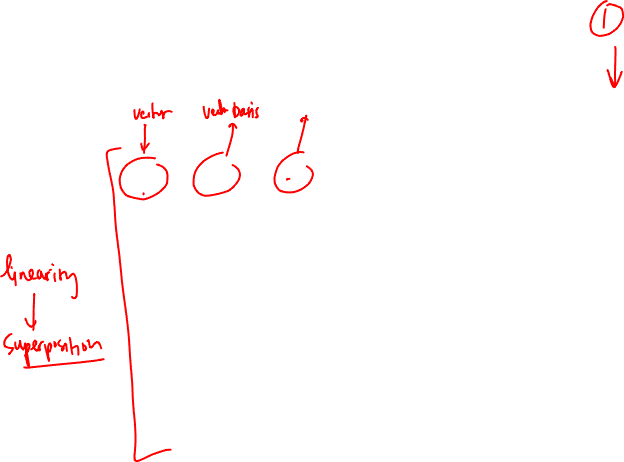 1
vector vect basis
linearity
Superposition